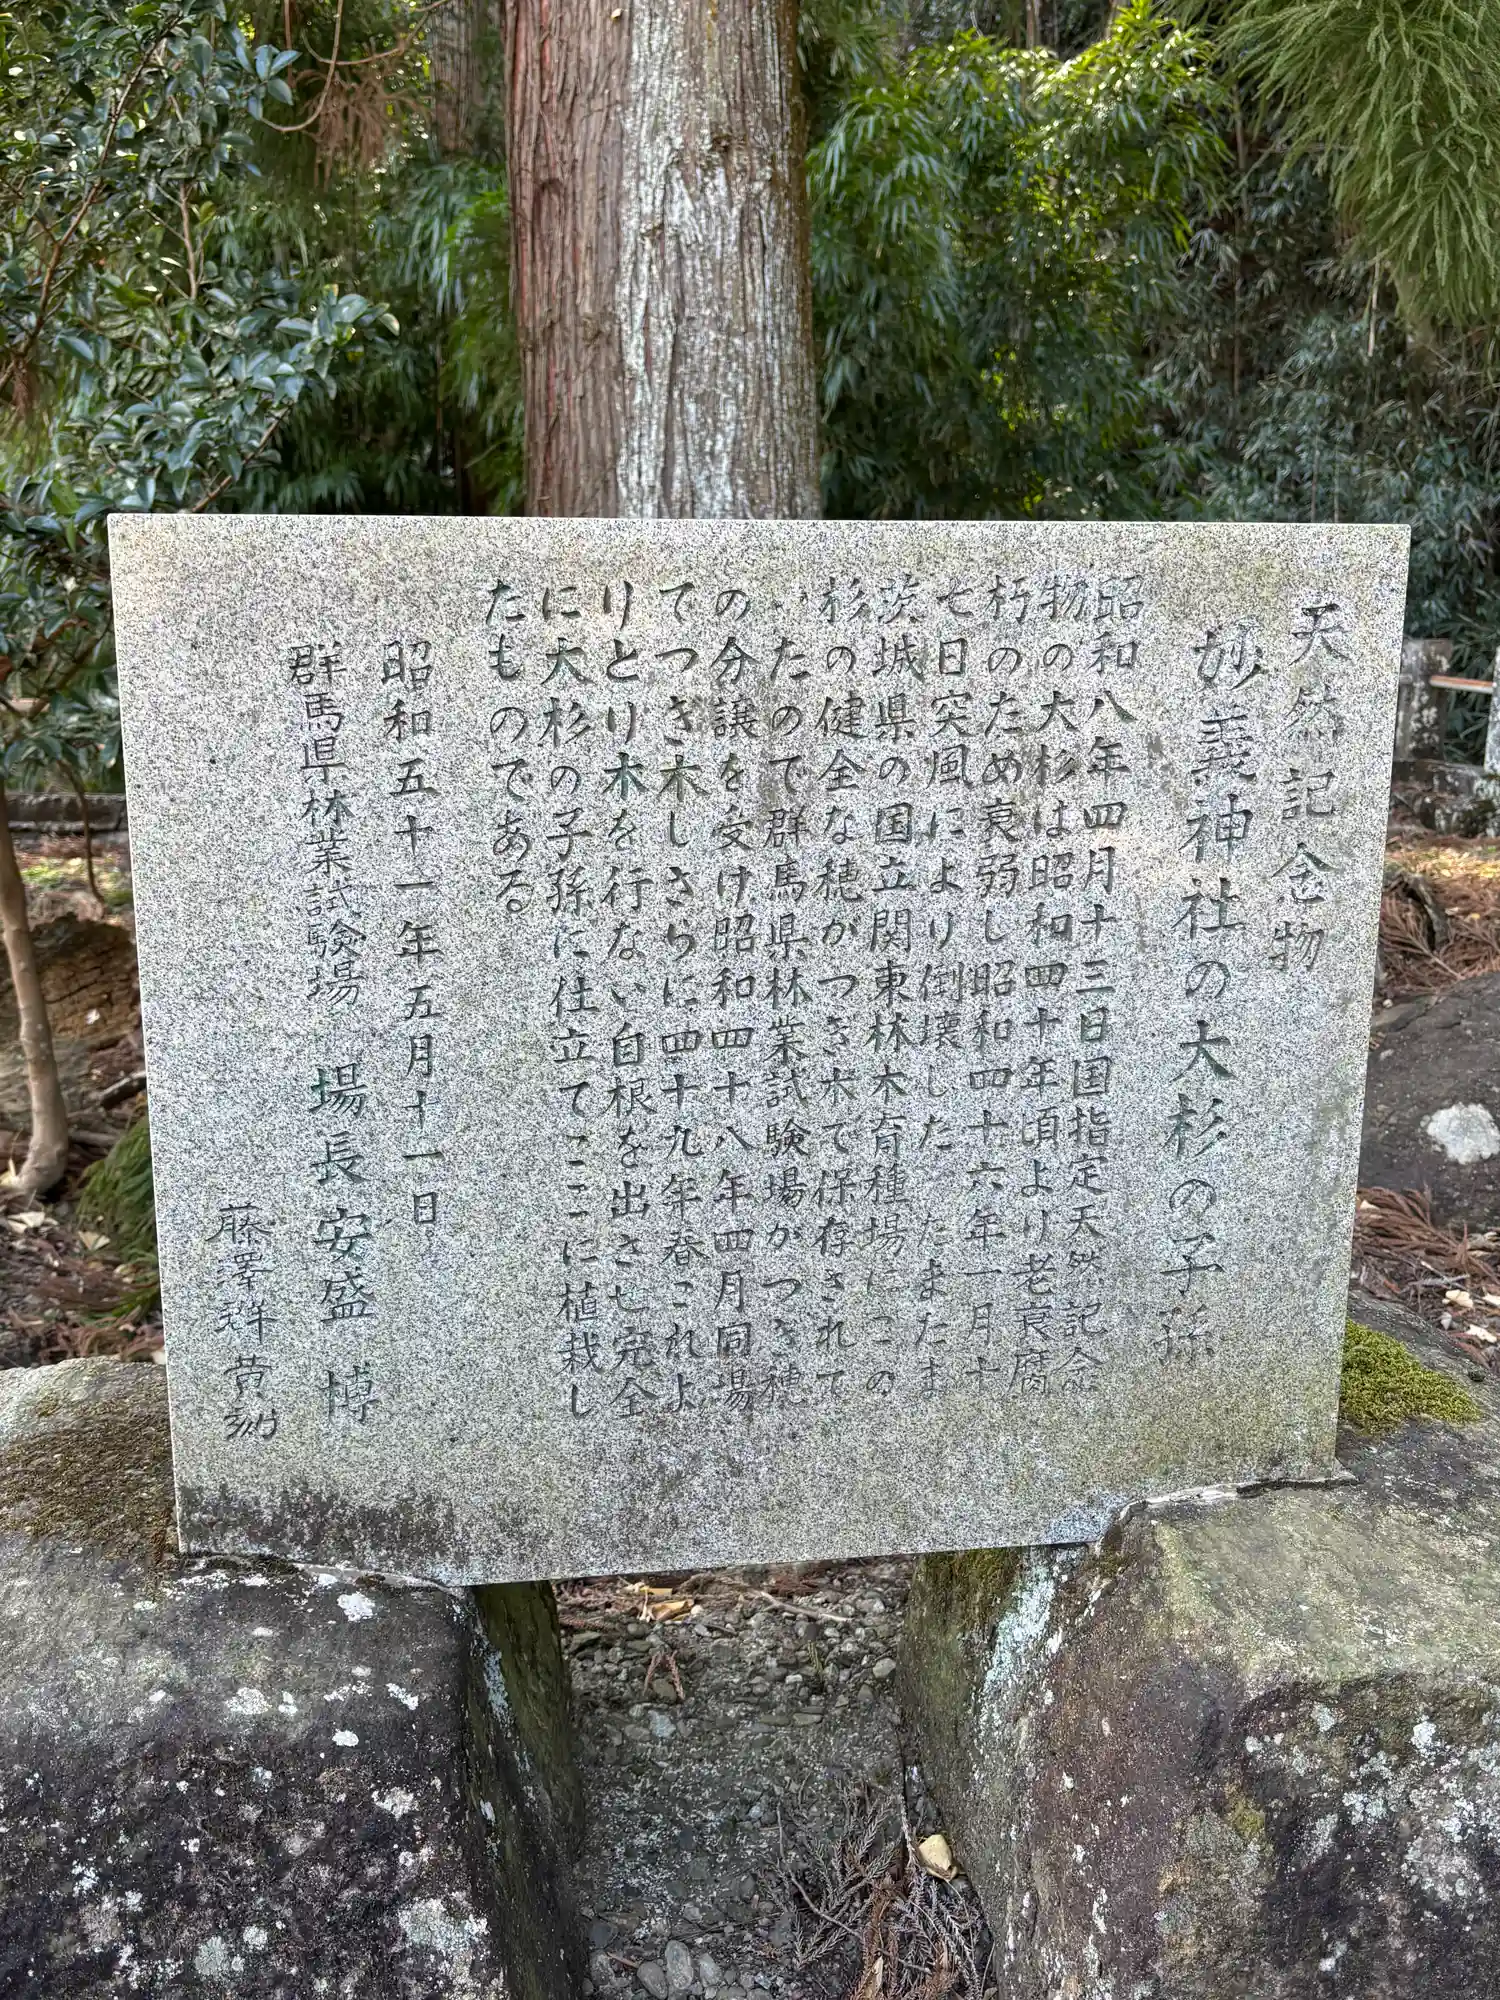 天然記念物
妙義神社の大杉の子孫
昭和八年四月十三日国指定天然記念
物の大杉は昭和四十年頃より老衰腐
朽のため衰弱し昭和四十六年一月十
七日突風により倒壊したったまたま
茨城県の国立関東林木育種場にこの
杉の健全な穂がつぎ木で保存されて
いたので群馬県林業試験場がつぎ穂
の分譲を受け昭和四十八年四月同場
てつぎ木しさらに四十九年春これよ
りとり木を行ない自根を出させ完全
に大杉の子孫に仕立てここに植栽し
たものである
昭和五十一年五月十一日
群馬県林業試験場 場長安盛 博
藤澤 黄刻